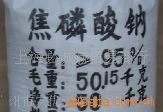 焦磷酸钠
含量:≥95%
毛重:50.15千克
净重:50千克